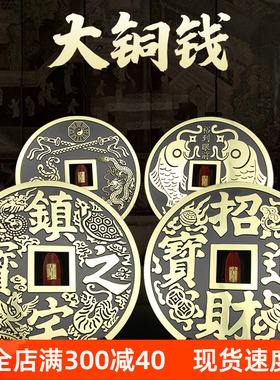 大铜钱
鎮宅之寶
招財進寶
全店满300减40 现货速